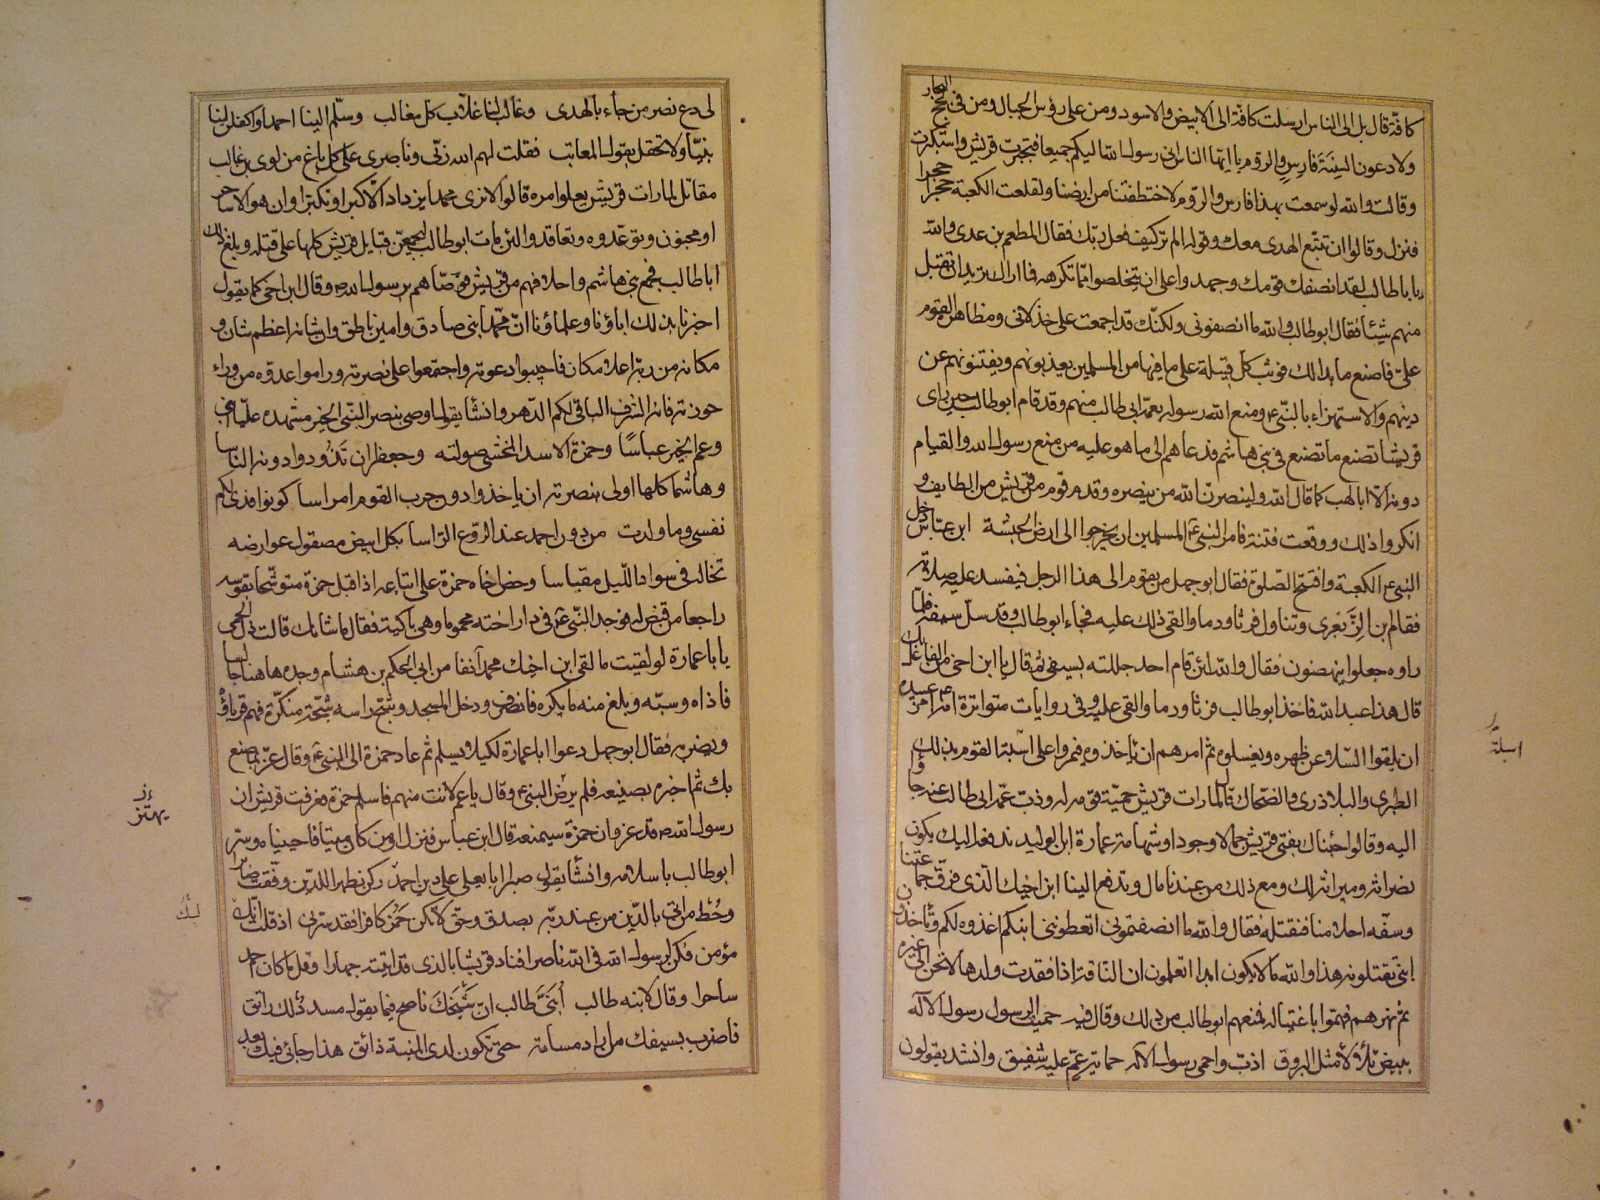 كافة قال بل الى الناس ارسلت كافة الى الابيض والاسود ومن على رؤس الجبال ومن فى لجج البحار
ولادعون السنة فارس والروم يا ايها الناس انى رسول الله اليكم جميعا فتجبرت قريش واستكبرت
وقالت والله لو سمعت بهذا فارس والروم لاختطفتنا من ارضنا ولقلعت الكعبة حجرا حجرا
فنزل وقالوا ان نتبع الهدى معك وقوله الم تر كيف فعل ربك فقال المطعم بن عدى والله
يا با طالب لقد انصفك قومك وجهدوا على ان يتخلصوا مما تكرهه فما اراك تريد ان تقبل
منهم شيئا فقال ابو طالب والله ما انصفونى ولكنك قد اجمعت على خذلانى ومظاهرة القوم
على فاصنع ما بدا لك فوثب كل قبيلة على ما فيها من المسلمين يعذبونهم ويفتنونهم عن
دينهم والاستهزاء بالنبى ع ومنع الله رسوله بعمه ابى طالب منهم وقد قام ابو طالب حين راى
قريشا تصنع ما تصنع فى بنى هاشم فدعاهم الى ما هو عليه من منع رسول الله والقيام
دونه الا ابا لهب كما قال الله ولينصرن الله من ينصره وقدم قوم من قريش من الطايف و
انكروا ذلك ووقعت فتنة فامر النبى ع المسلمين ان يخرجوا الى ارض الحبشة ابن عباس دخل
النبى ع الكعبة وافتتح الصلوة فقال ابو جهل من يقوم الى هذا الرجل فيفسد عليه صلاته
فقام بن الزبعرى وتناول فرثا ودما والقى ذلك عليه فجاء ابو طالب وقد سل سيفه فلما
راوه جعلوا ينهضون فقال والله لئن قام احد جللته بسيفى ثم قال يا ابن اخى من الفاعل بك
قال هذا عبد الله فاخذ ابو طالب فرثا ودما والقى عليه وفى روايات متواترة انه امر عبيده
ان يلقوا السلا عن ظهره ويغسلوه ثم امرهم ان ياخذوه فيمروا على اسبلة القوم بذلك
الطبرى والبلاذرى والضحاك قال لما رات قريش حمية قومه له وذب عمه ابى طالب عنه جاؤا
اليه وقالوا جئناك بفتى قريش جمالا وجودا وشهامة عمارة ابن الوليد ندفعه اليك يكون
نصره وميراثه لك ومع ذلك من عندنا مال وتدفع الينا ابن اخيك الذى فرق جماعتنا
وسفه احلامنا فنقتله فقال والله ما انصفتمونى اتعطونى ابنكم اغذوه لكم وتاخذون
ابنى تقتلونه هذا والله ما لا يكون ابدا اتعلمون ان الناقة اذا فقدت ولدها لا تحن الى غيره
ثم نهرهم فهموا باغتياله فمنعهم ابو طالب من ذلك وقال فيه حميت الرسول رسول الاله
ببيض تلألأ مثل البروق اذب واحمى رسول الاله حماية عم عليه شفيق وانشد يقولون
اسبلة
لى دع نصر من جاء بالهدى وغالب لنا غلاب كل مغالب وسلم الينا احمدا واكفلن لنا
بنيا ولا تحفل بقول المعاتب فقلت لهم الله ربى وناصرى على كل باغ من لوى بن غالب
مقاتل لما رات قريش يعلو امره قالوا لا نرى محمدا يزداد الا كبرا وتكبرا وان هو الا ساحر
او مجنون وتوعدوه وتعاقدوا لئن مات ابو طالب ليجمعن قبايل قريش كلها على قتله وبلغ ذلك
ابا طالب فجمع بنى هاشم واحلافهم من قريش فوصاهم برسول الله وقال ابن اخى كما يقول
اخبرنا بذلك اباؤنا وعلماؤنا ان محمدا نبى صادق وامين ناطق وان شانه اعظم شان و
مكانه من ربه اعلا مكان فاجيبوا دعوته واجتمعوا على نصرته وراموا عدوه من وراء
حوزته فانه الشرف الباقى لكم الدهر وانشا يقول اوصى بنصر النبى الخير مشهده عليا ابنى
وعم الخير عباسا وحمزة الاسد المخشى صولته وجعفرا ان تذودوا دونه الناسا
وهاشما كلها اوصى بنصرته ان ياخذوا دون حرب القوم امراسا كونوا فدى لكم
نفسى وما ولدت من دون احمد عند الروع اتراسا بكل ابيض مصقول عوارضه
تخاله فى سواد الليل مقباسا وحض اخاه حمزة على اتباعه اذ اقبل حمزة متوشحا بقوسه
راجعا من قنص له فوجد النبى ع فى دار اخته محموما وهى باكية فقال ما شانك قالت ذل الحمى
يا با عمارة لو لقيت ما لقى ابن اخيك محمد آنفا من ابى الحكم بن هشام وجده هاهنا جالسا
فاذاه وسبه وبلغ منه ما يكره فانصرف ودخل المسجد وشج راسه شجة منكرة فهم قرباؤه
بضربه فقال ابو جهل دعوا ابا عمارة لكيلا يسلم ثم عاد حمزة الى النبى ع وقال عز بما صنع
بك ثم اخبره بصنيعه فلم يرض النبى ع وقال يا عم لانت منهم فاسلم حمزة فعرفت قريش ان
رسول الله قد عز وان حمزة سيمنعه قال ابن عباس فنزل او من كان ميتا فاحييناه وسر
ابو طالب باسلامه وانشا يقول صبرا ابا يعلى على دين احمد وكن مظهرا للدين وفقت صابرا
وحط من اتى بالدين من عند ربه بصدق وحق لا تكن حمز كافرا فقد سرنى اذ قلت انك
مؤمن فكن لرسول الله فى الله ناصرا فناد قريشا بالذى قد اتيته جهارا وقل ما كان احمد
ساحرا وقال لابنه طالب أبنى طالب ان شيخك ناصح فيما يقول مسدد لك راتق
فاضرب بسيفك من اراد مساته حتى تكون لدى المنية ذائق هذا رجائى فيك بعد